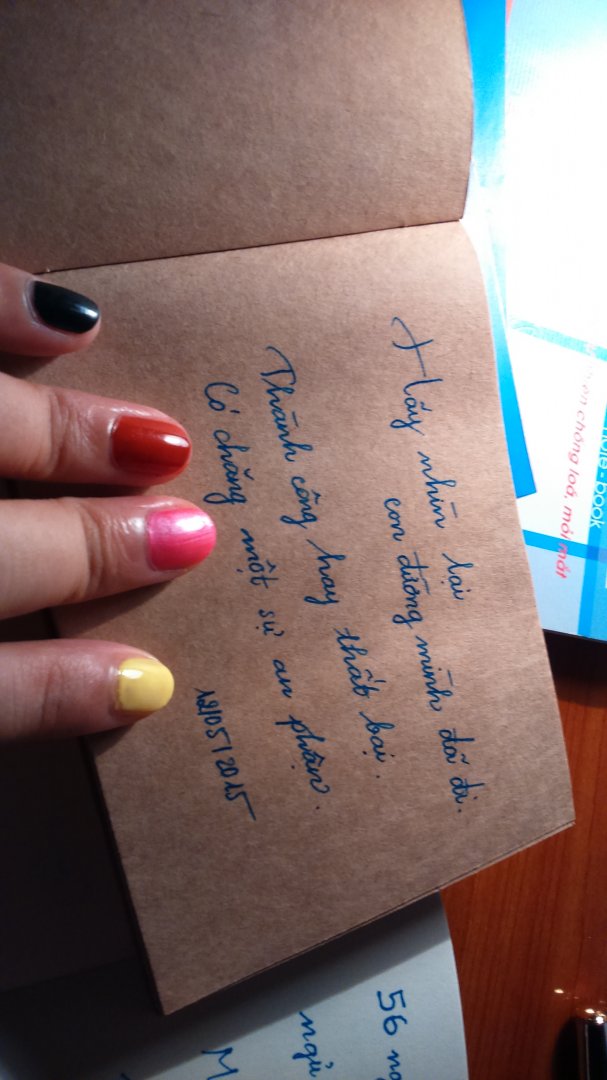 Hãy nhìn lại
con đường mình đã đi.
Thành công hay thất bại.
Có chăng một sự an phận.
12/05/2015
note-book
chống loá, mỏi mắt
56
ngủ
M